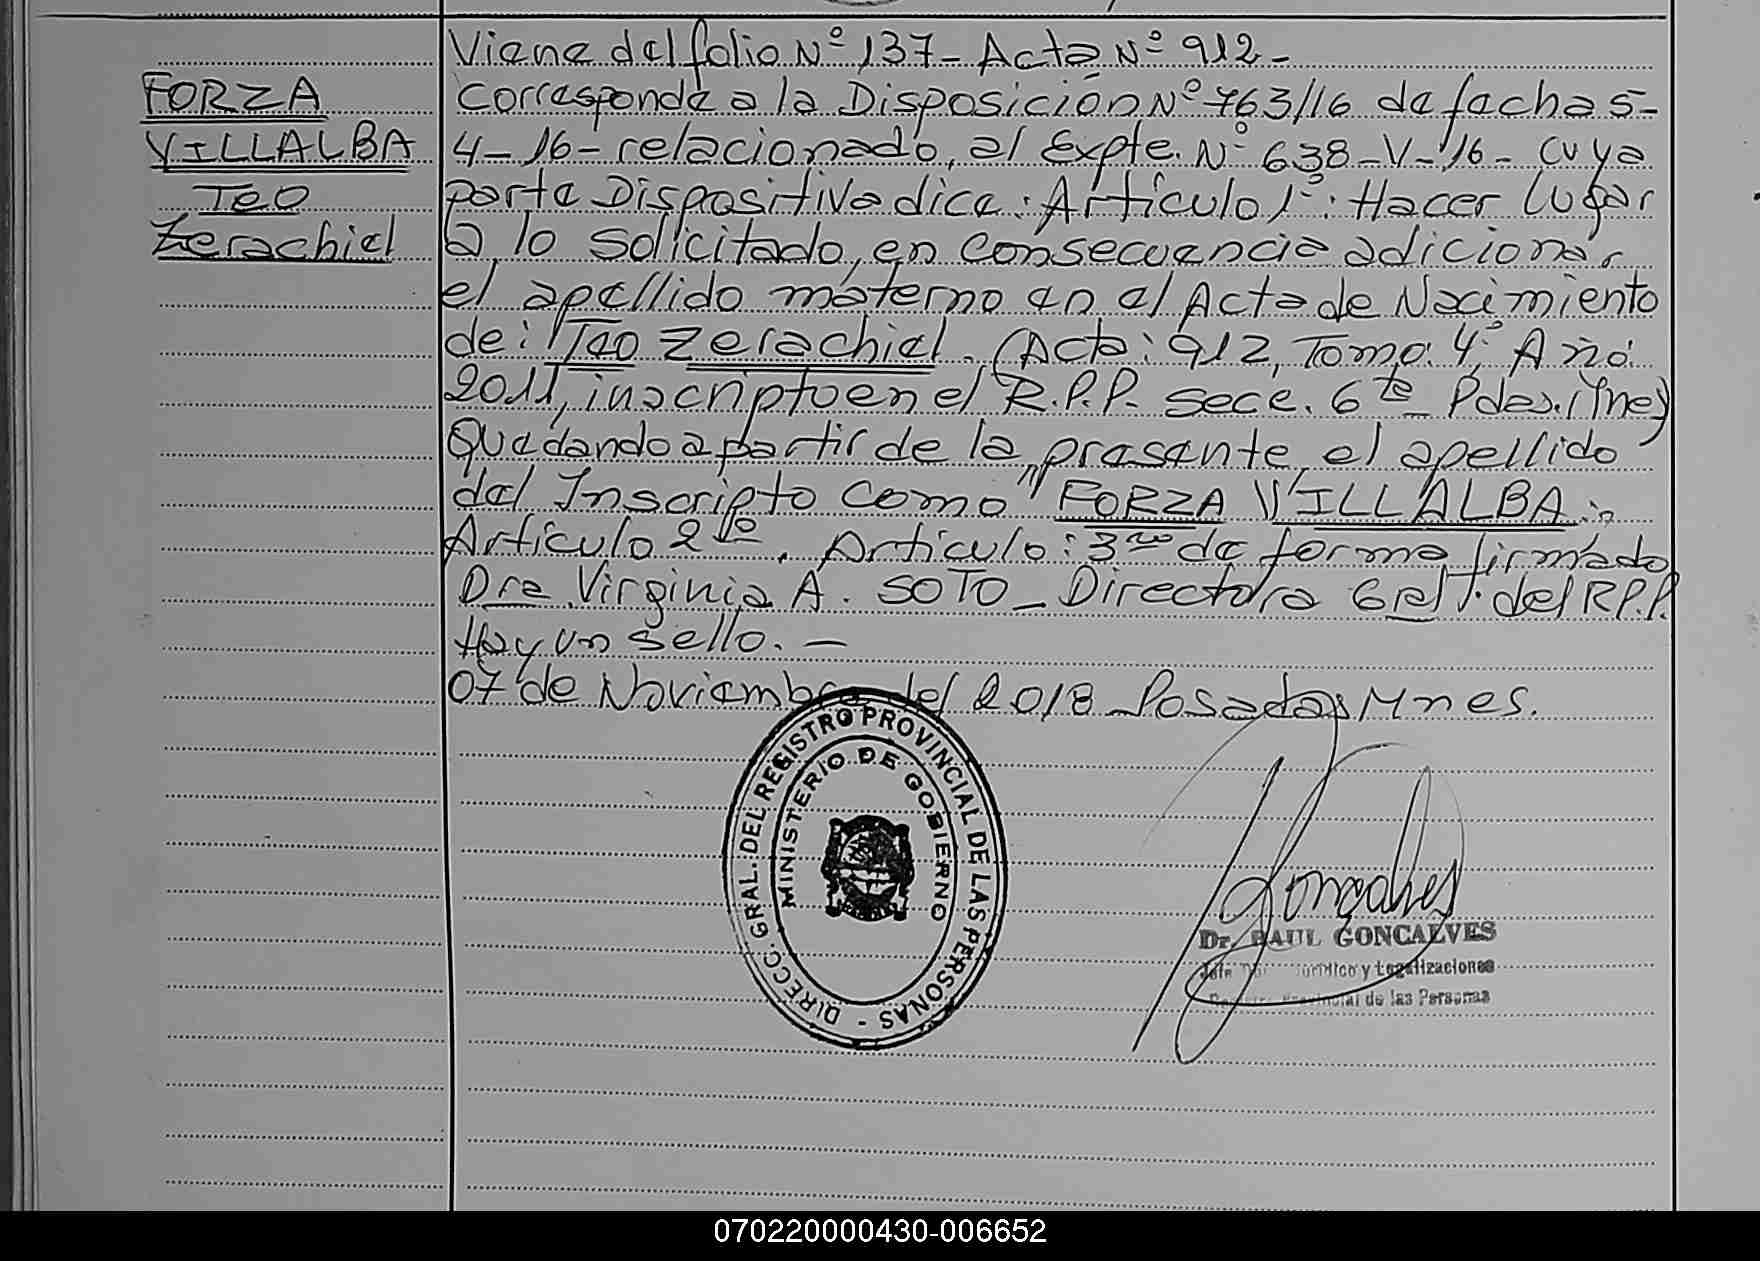 Viene del folio Nº 137 - Acta Nº 912 -
FORZA
VILLALBA
Teo
Zerachiel
Corresponde a la Disposición Nº 763/16 de fecha 5-
4-16- relacionado, al Expte. Nº 638-V-16- cuya
parte Dispositiva dice: Artículo 1º: Hacer lugar
a lo solicitado, en consecuencia adicionar
el apellido materno en el Acta de Nacimiento
de: "Teo Zerachiel. (Acta: 912, Tomo: 4º Año:
2011, inscripto en el R.P.P. Secc. 6ta Pdas. (Mnes)
Quedando a partir de la presente, el apellido
del Inscripto como "FORZA VILLALBA".
Artículo 2do. Artículo: 3ro de forma firmado
Dra Virginia A. SOTO - Directora Gral. del R.P.P.
Hay un sello. -
07 de Noviembre del 2018 Posadas Mnes.
DIRECC. GRAL. DEL REGISTRO PROVINCIAL DE LAS PERSONAS -
MINISTERIO DE GOBIERNO
Gonçalves
Dr. RAUL GONCALVES
Jefe Jurídico y Legalizaciones
Registro Provincial de las Personas
070220000430-006652